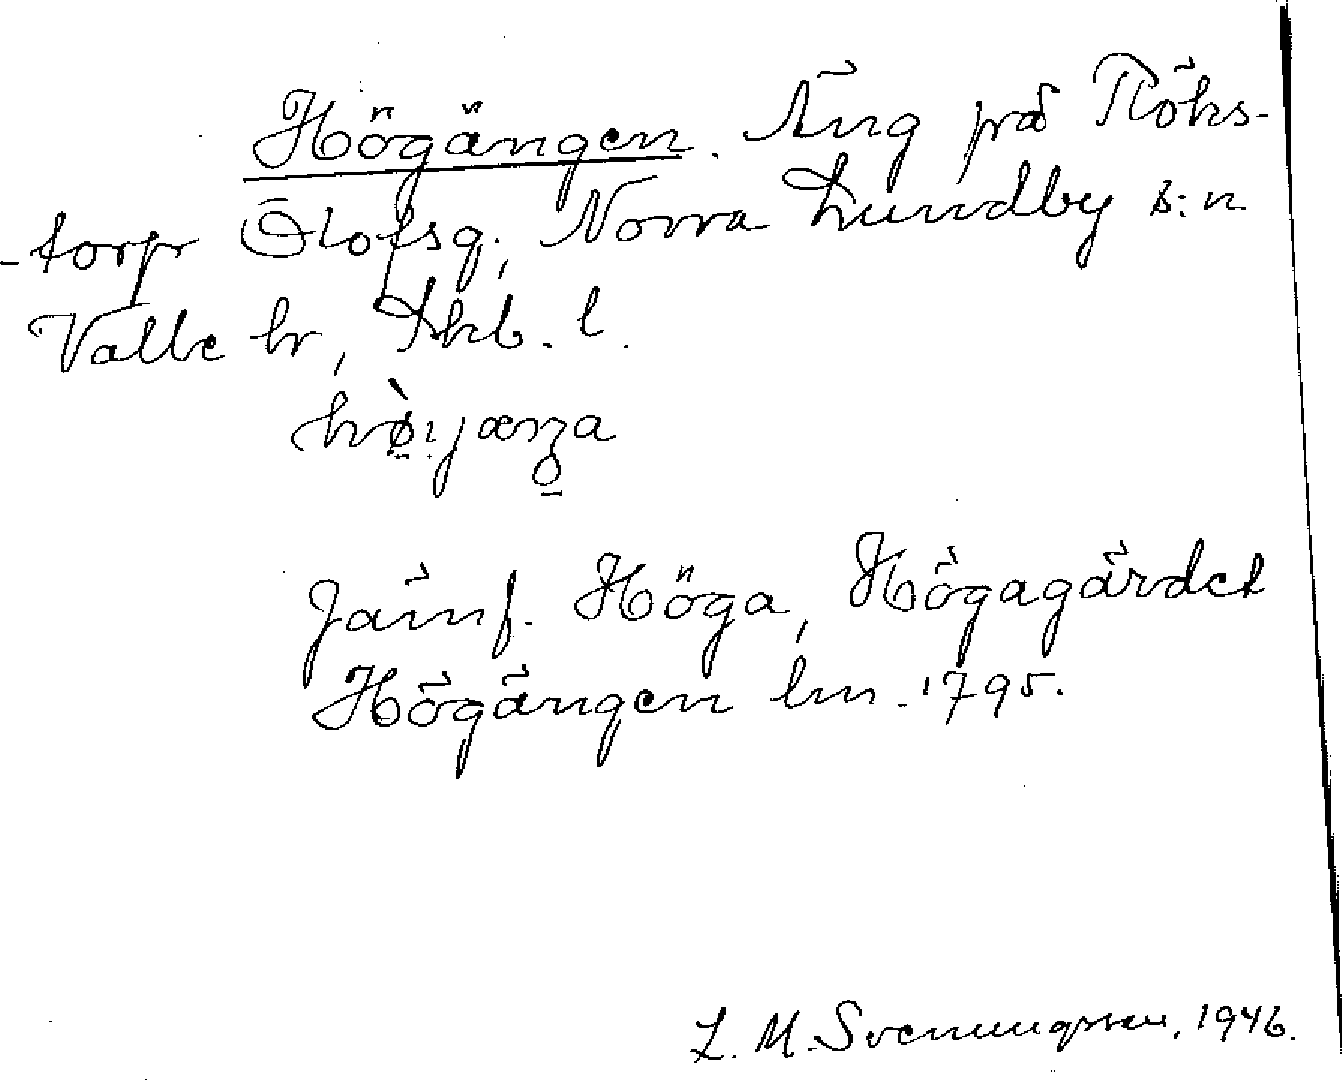 Högängen. Äng på Röks-
-torp Olofsg., Norra Lundby s:n
Valle hr, Skb. l.
hø̀ıjæŋa
Jämf. Höga, Högagärdet
Högängen lm. 1795.
L. M. Svenungsson, 1946.